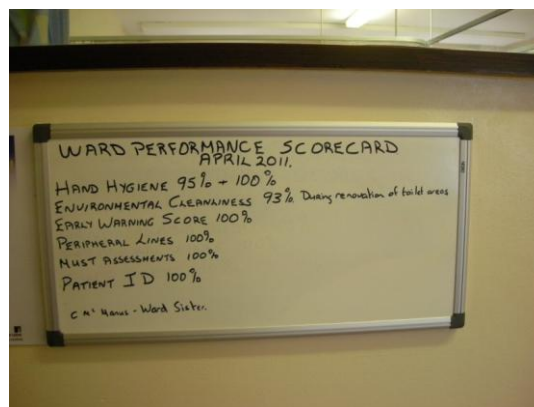 WARD PERFORMANCE SCORECARD
APRIL 2011.
HAND HYGIENE 95% + 100%
ENVIRONMENTAL CLEANLINESS 93% During renovation of toilet areas
EARLY WARNING SCORE 100%
PERIPHERAL LINES 100%
MUST ASSESSMENTS 100%
PATIENT ID 100%
C Mc Manus - Ward Sister.